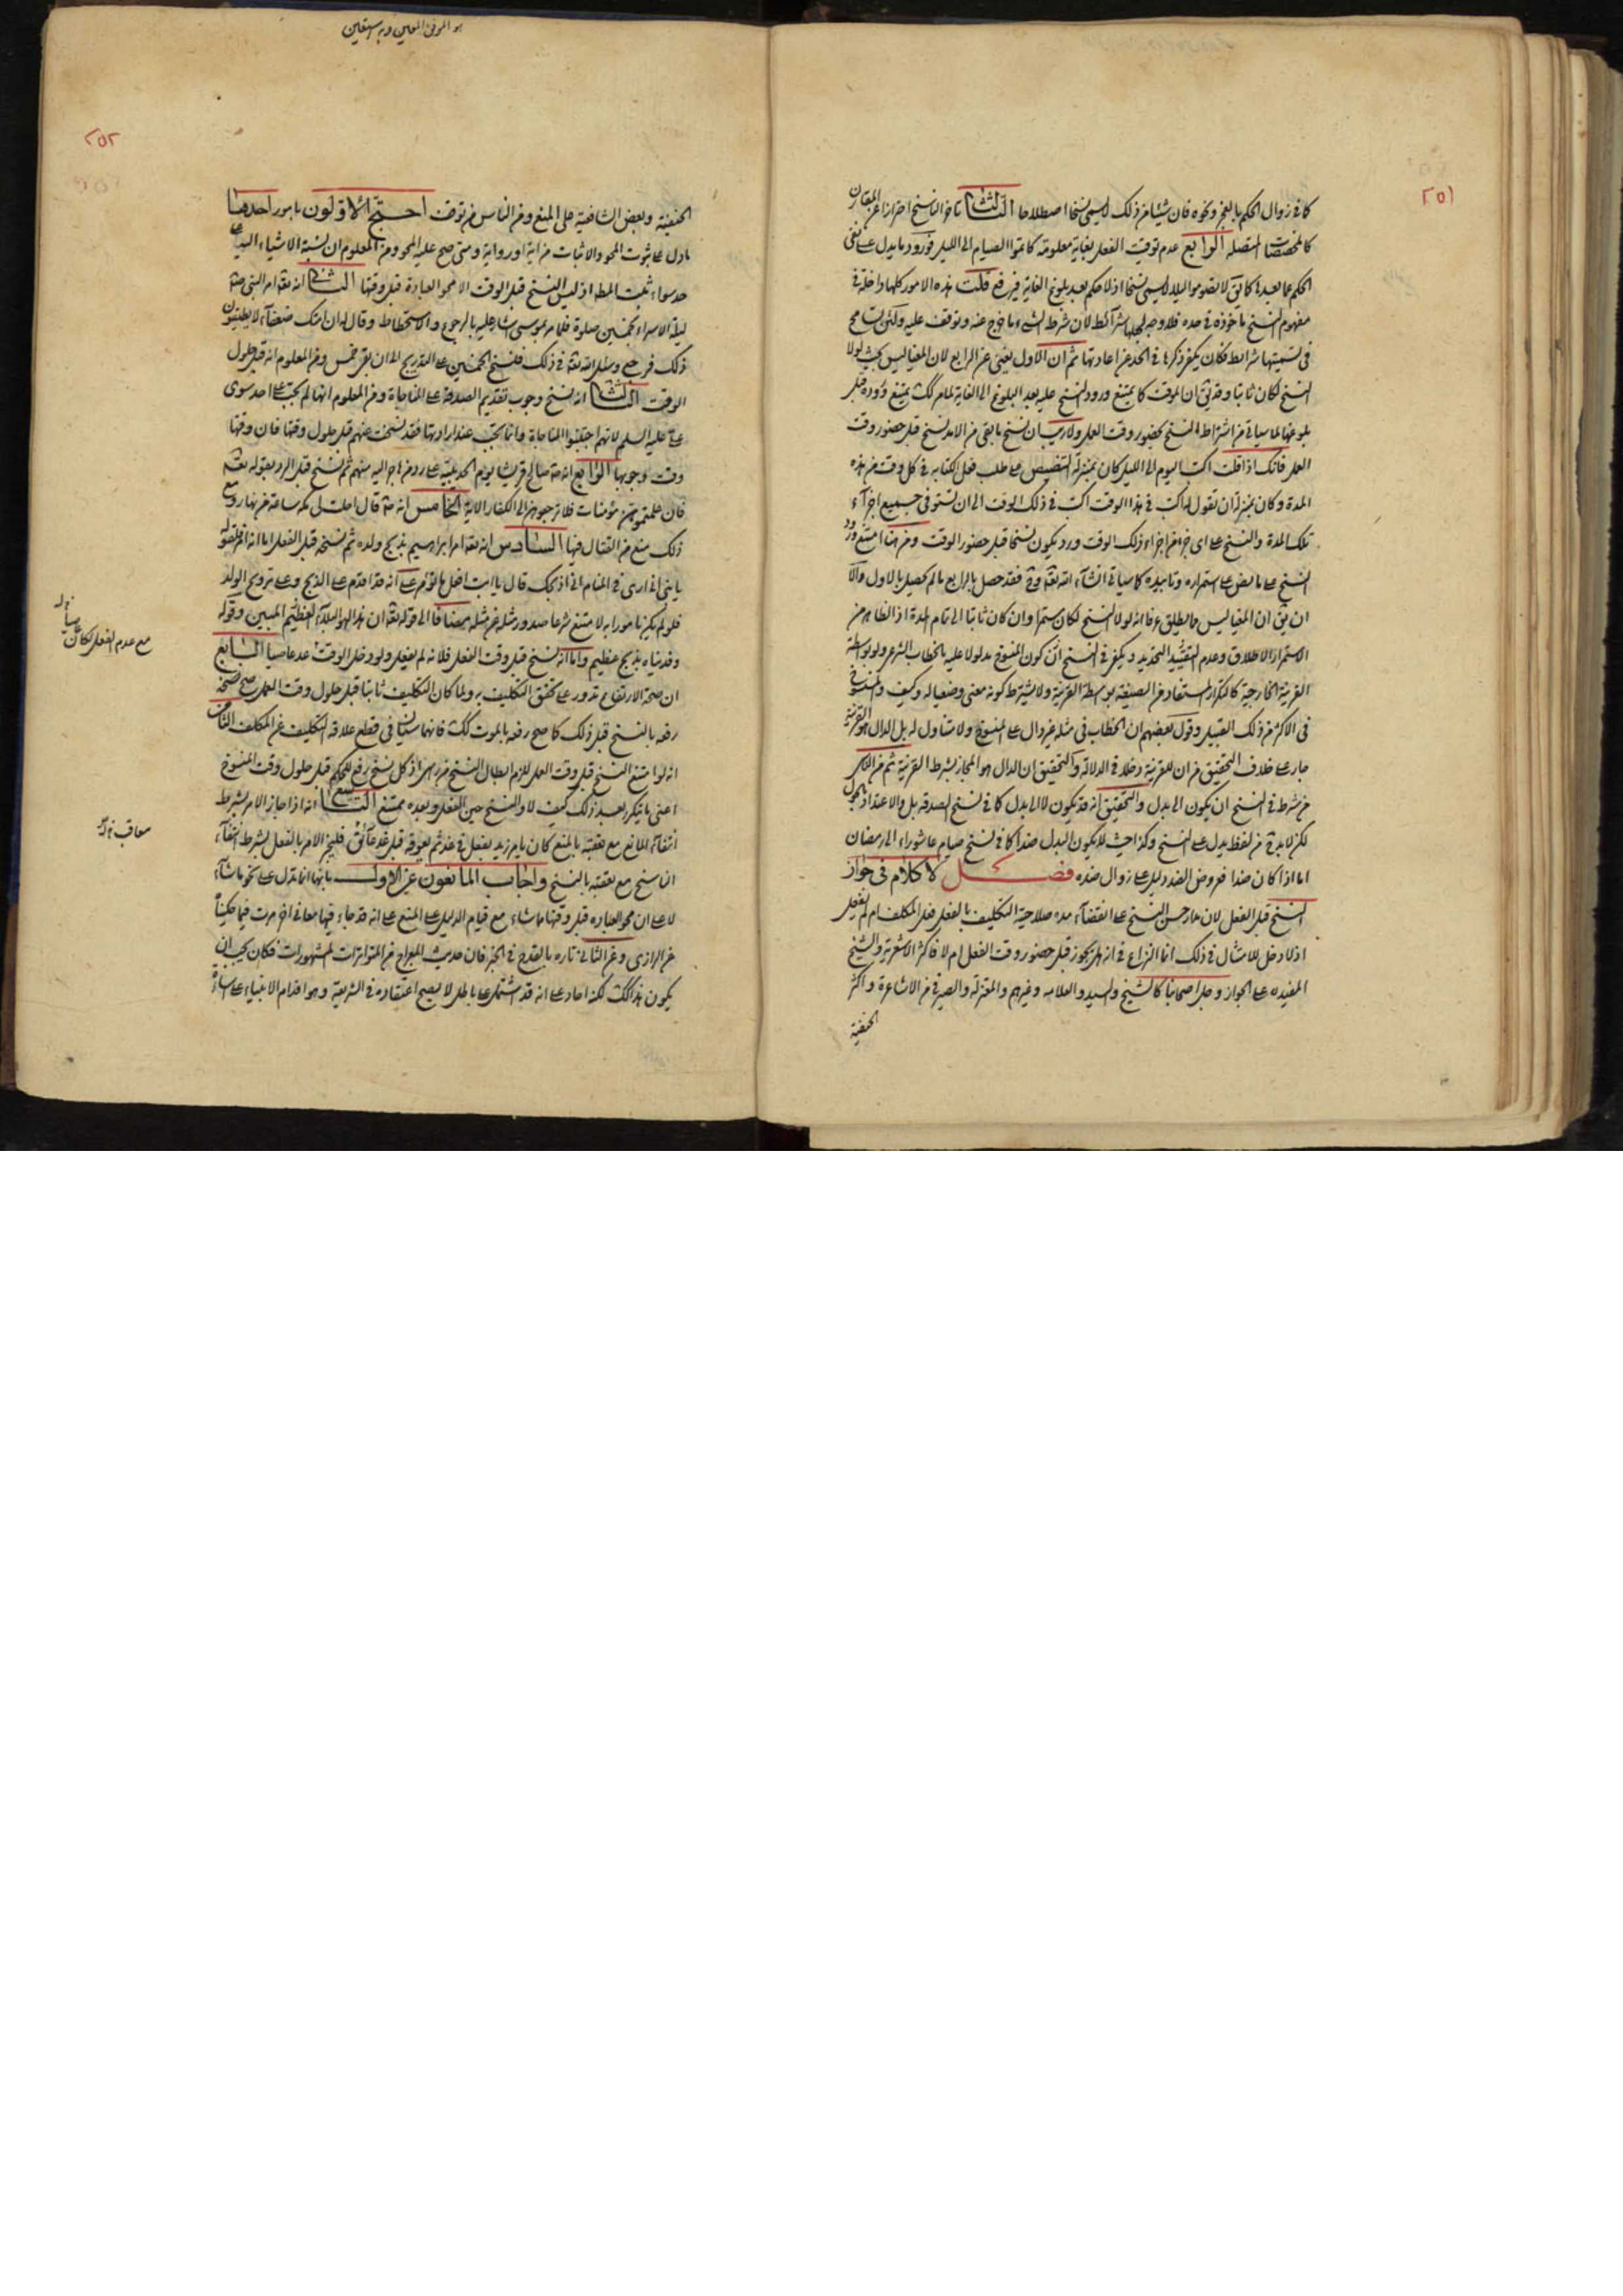 ٢٥١
كما في زوال الحكم بالعجز ونحوه فان شيئا من ذلك لا يسمى نسخا اصطلاحا الثالث تاخر الناسخ احترازا عن المقارن
كالمخصصات المتصلة الرابع عدم توقيت الفعل بغاية معلومة كاتموا الصيام الى الليل فورود ما يدل على نفى
الحكم عما بعدها كما يق لا تصوموا الليل لا يسمى نسخا اذ لا حكم بعد بلوغ الغاية فيرفع قلت هذه الامور كلها داخلة في
مفهوم النسخ ماخوذة في حده فلا وجه لجعلها شرائط لان شرط الشيء ما خرج عنه وتوقف عليه ولكن تسامح
في تسميتها شرائط فكان يكفى ذكرها في الحد عن اعادتها ثم ان الاول يغنى عن الرابع لان المغيا ليس بحيث لولا
النسخ لكان ثابتا وقد يق ان الموقت كما يمتنع ورود النسخ عليه بعد البلوغ الى الغاية لما مر كك يمتنع وروده قبل
بلوغها لما سياتى من اشتراط النسخ بحضور وقت العمل ولا ريب ان نسخ ما بقى من الامد نسخ قبل حضور وقت
العمل فانك اذا قلت اكتب اليوم الى الليل كان بمنزلة التنصيص على طلب فعل الكتابة في كل وقت من هذه
المدة وكان بمنزلة ان تقول اكتب في هذا الوقت اكتب في ذلك الوقت الى ان تستوفى جميع اجزآء
تلك المدة والنسخ على اى جزء من اجزاء ذلك الوقت ورد يكون نسخا قبل حضور الوقت ومن هنا امتنع ورود
النسخ على ما نص على استمراره وتابيده كما سياتى انشآء الله تعه وح فقد حصل بالرابع ما لم يحصل بالاول والا
ان يق ان المغيا ليس مما يطلق عرفا انه لولا النسخ لكان مستمرا وان كان ثابتا الى تمام المدة اذ الظاهر من
الاستمرار الاطلاق وعدم التقييد والتحديد ويكفى في النسخ ان يكون المنسوخ مدلولا عليه بالخطاب الشرعى ولو بواسطة
القرينة الخارجية كالتكرار المستفاد من الصيغة بواسطة القرينة ولا يشترط كونه معنى وضعيا له وكيف والمنسوخ
في الاكثر من ذلك القبيل وقول بعضهم ان الخطاب في مثله غير دال على المنسوخ ولا متناول له بل الدال هو القرينة
جار على خلاف التحقيق من ان للقرينة دخلا في الدلالة والتحقيق ان الدال هو المجاز بشرط القرينة ثم من الناس
من شرط في النسخ ان يكون الى بدل والتحقيق انه قد يكون لا الى بدل كما في نسخ الصدقة بل والاعتداد بالحول
لكن لا بد من لفظ يدل على النسخ وكذا حيث لا يكون البدل ضدا كما في نسخ صيام عاشوراء الى رمضان
اما اذا كان ضدا فعروض الضد دليل على زوال ضده فصل لا كلام في جواز
النسخ قبل الفعل لان مدار حسن النسخ على انقضآء مدة صلاحية التكليف بالفعل فعل المكلف ام لم يفعل
اذ لا دخل للامتثال في ذلك انما النزاع في انه هل يجوز قبل حضور وقت الفعل ام لا فاكثر الاشعرية والشيخ
المفيد ره على الجواز وجل اصحابنا كالشيخ والسيد والعلامه وغيرهم والمعتزلة والصيرفى من الاشاعرة واكثر
الحنفية
هو الموفق المعين وبه نستعين
٢٥٢
الحنفية وبعض الشافعية على المنع ومن الناس من توقف احتج الاولون بامور احدها
ما دل على ثبوت المحو والاثبات من اية او رواية ومتى صح عليه المحو ومن المعلوم ان نسبة الاشياء اليه على
حد سواء ثبت المط اذ ليس النسخ قبل الوقت الا محو العبادة قبل وقتها الثانى انه تعه امر النبى ص
ليلة الاسراء بخمسين صلوة فلما مر بموسى اشار عليه بالرجوع والاستحطاط وقال له ان امتك ضعفآء لا يطيقون
ذلك فرجع وسئل الله تعه في ذلك فنسخ الخمسين على التدريج الى ان بقى خمس ومن المعلوم انه قبل حلول
الوقت الثالث انه نسخ وجوب تقديم الصدقة على المناجاة ومن المعلوم انها لم تجب على احد سوى
على عليه السلم لانهم اجتنبوا المناجاة وانما تجب عند ارادتها فقد نسخت عنهم قبل حلول وقتها فان وقتها
وقت وجوبها الرابع انه ص صالح قريشا يوم الحديبية على رد من هاجر اليه منهم ثم نسخ قبل الرد بقوله تعه
فان علمتموهن مؤمنات فلا ترجعوهن الى الكفار الاية الخامس انه ص قال احلت لى مكة ساعة من نهار ومع
ذلك منع من القتال فيها السادس انه تعه امر ابراهيم بذبح ولده ثم نسخه قبل الفعل اما انه امر فلقوله
يا بنى انى ارى في المنام انى اذبحك قال يا ابت افعل ما تؤمر على انه قد اقدم على الذبح وعلى ترويع الولد
فلو لم يكن مامورا به لامتنع شرعا صدور مثله عن مثله مضافا الى قوله تعه ان هذا لهو البلآء العظيم المبين وقوله
وفديناه بذبح عظيم واما انه نسخ قبل وقت الفعل فلانه لم يفعل ولو دخل الوقت عد عاصيا السابع
ان صحة الارتفاع تدور على تحقق التكليف به ولما كان التكليف ثابتا قبل حلول وقت العمل صح نسخه
رفعه بالنسخ قبل ذلك كما صح رفعه بالموت كك فانهما سيان في قطع علاقة التكليف عن المكلف الثامن
انه لو امتنع النسخ قبل وقت العمل للزم ابطال النسخ من راس اذ كل نسخ رفع للحكم قبل حلول وقت المنسوخ
اعنى ما يتكرر بعد ذلك كيف لا والنسخ حين الفعل وبعده ممتنع التاسع انه اذا جاز الامر بشرط
انتفآء المانع مع تعقبه بالمنع كان يامر زيد بفعل في غد ثم يعوقه قبل غد عائق فليجز الامر بالفعل بشرط انتفآء
الناسخ مع تعقبه بالنسخ واجاب المانعون عن الاول بانها انما تدل على محو ما شآء
لا على ان محو العبادة قبل وقتها مما شاء مع قيام الدليل على المنع على انه قد جاء فيها معانى اخر مرت فيما حكيناه
عن الرازى وعن الثانى تارة بالقدح في الخبر فان حديث المعراج من المتواترات المشهورات فكان يجب ان
يكون هذا كك لكنه احاد على انه قد اشتمل على باطل لا يصح اعتقاده في الشريعة وهو اقدام الانبياء على
مع عدم الفعل لكان عاصيا
معاقب